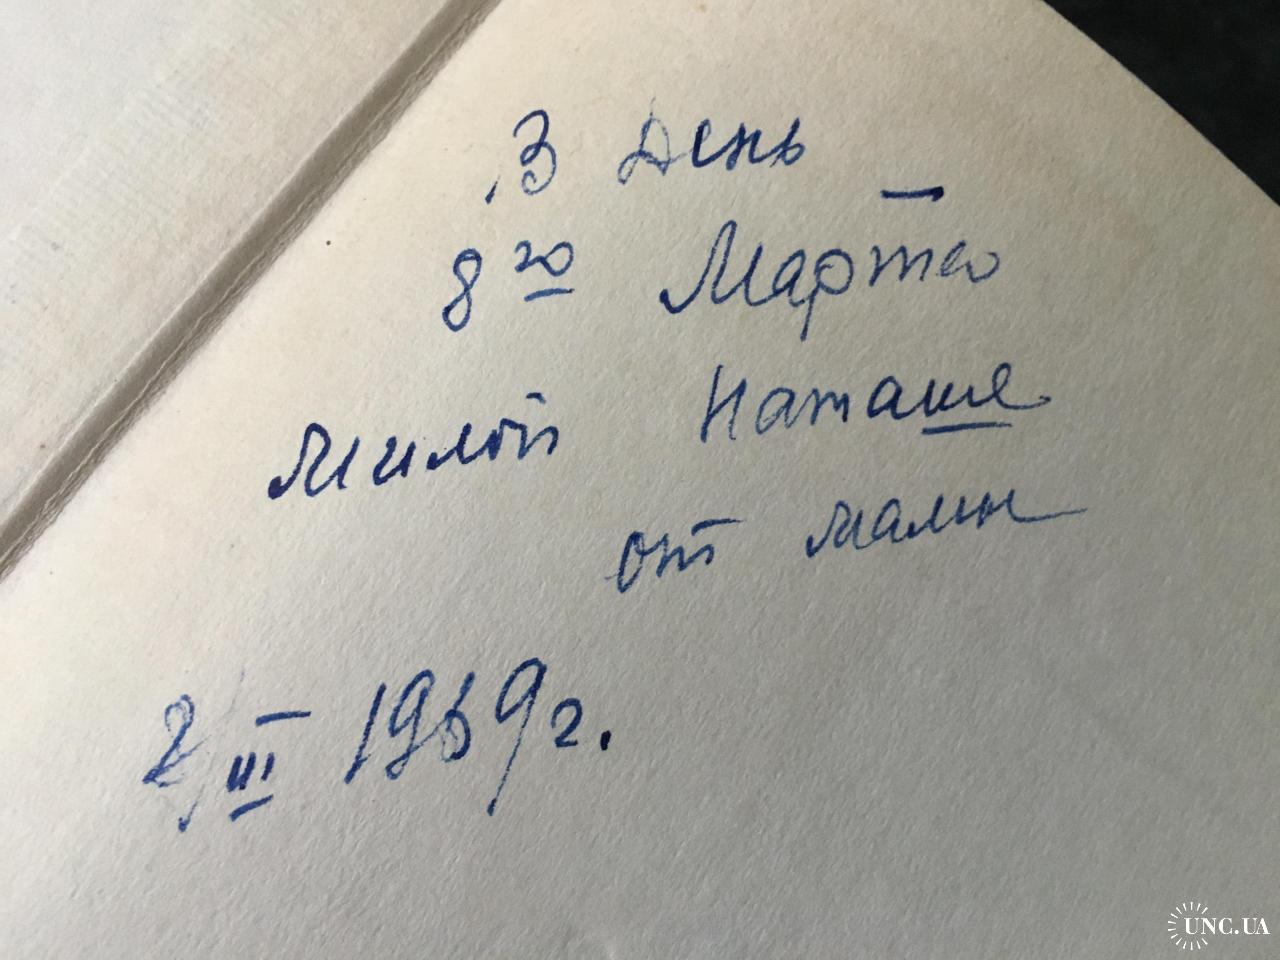 В День
8го Марта
милой Наташе
от мамы
2/III 1969 г.
UNC.UA